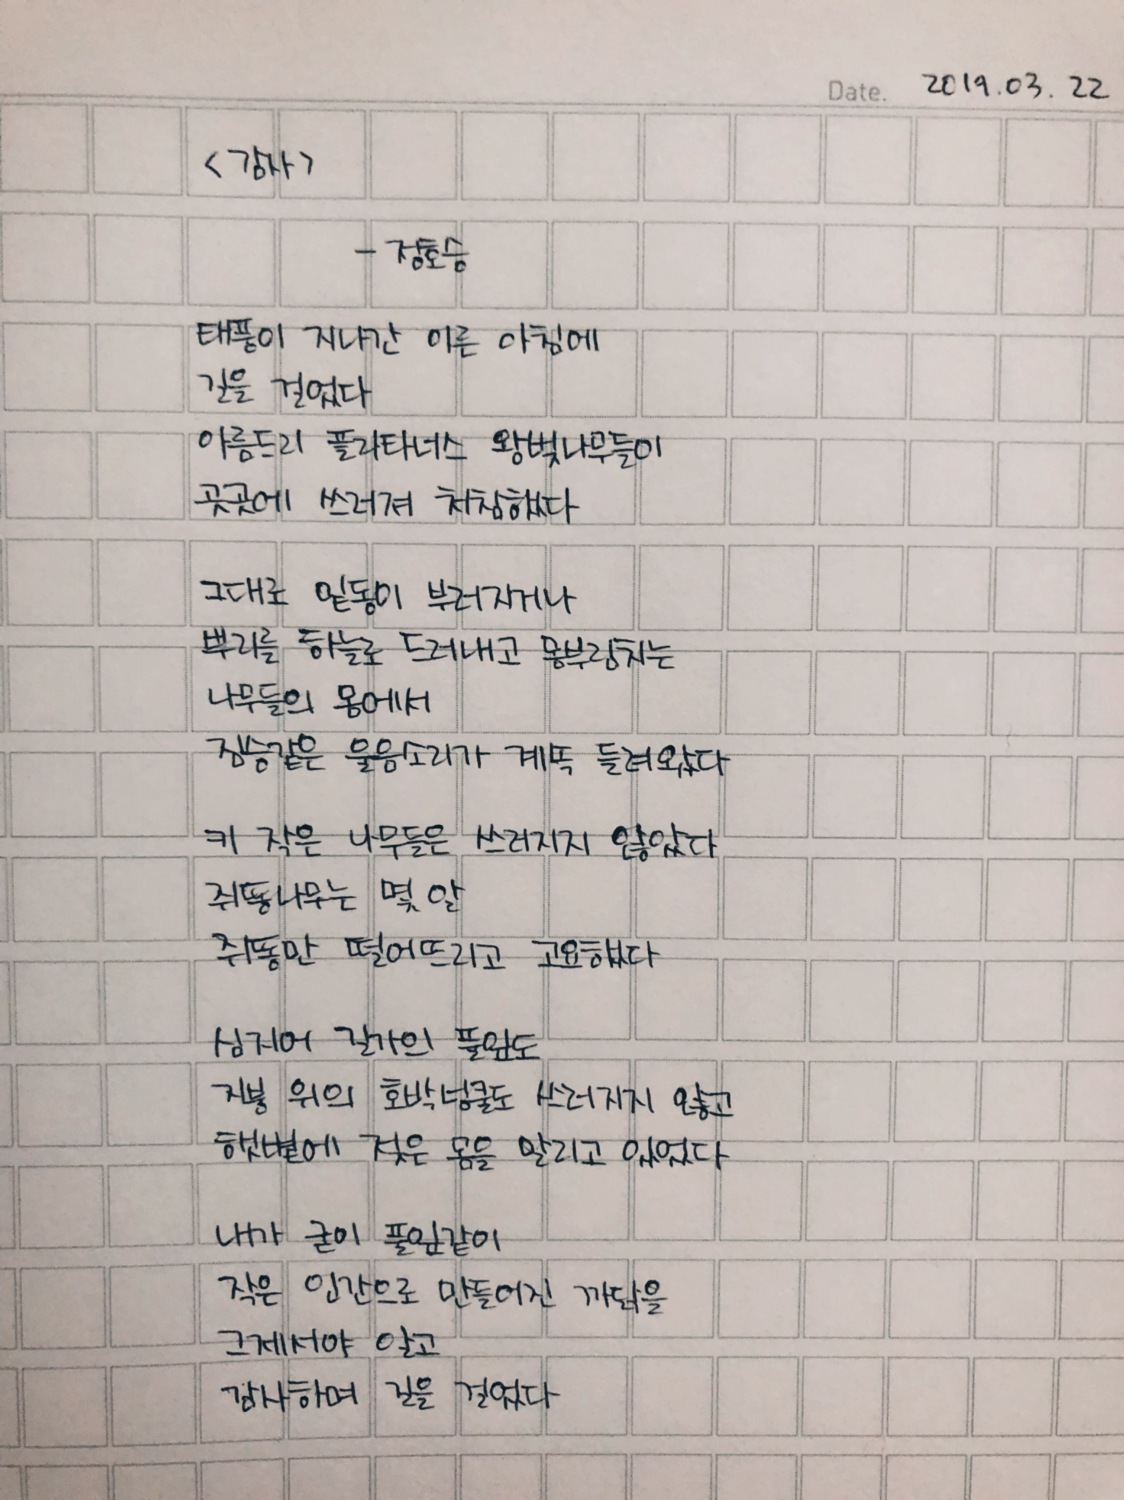 Date. 2019.03.22
<감사>
- 정호승
태풍이 지나간 이른 아침에
길을 걸었다
아름드리 플라타너스 왕벚나무들이
곳곳에 쓰러져 처참했다
그대로 밑동이 부러지거나
뿌리를 하늘로 드러내고 몸부림치는
나무들의 몸에서
짐승같은 울음소리가 계속 들려왔다
키 작은 나무들은 쓰러지지 않았다
쥐똥나무는 몇 알
쥐똥만 떨어뜨리고 고요했다
심지어 길가의 풀잎도
지붕 위의 호박넝쿨도 쓰러지지 않고
햇볕에 젖은 몸을 말리고 있었다
내가 굳이 풀잎같이
작은 인간으로 만들어진 까닭을
그제서야 알고
감사하며 길을 걸었다